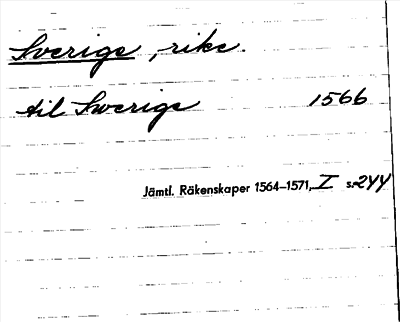 Sverige, rike.
til Swerige 1566
Jämtl. Räkenskaper 1564–1571, I s. 244